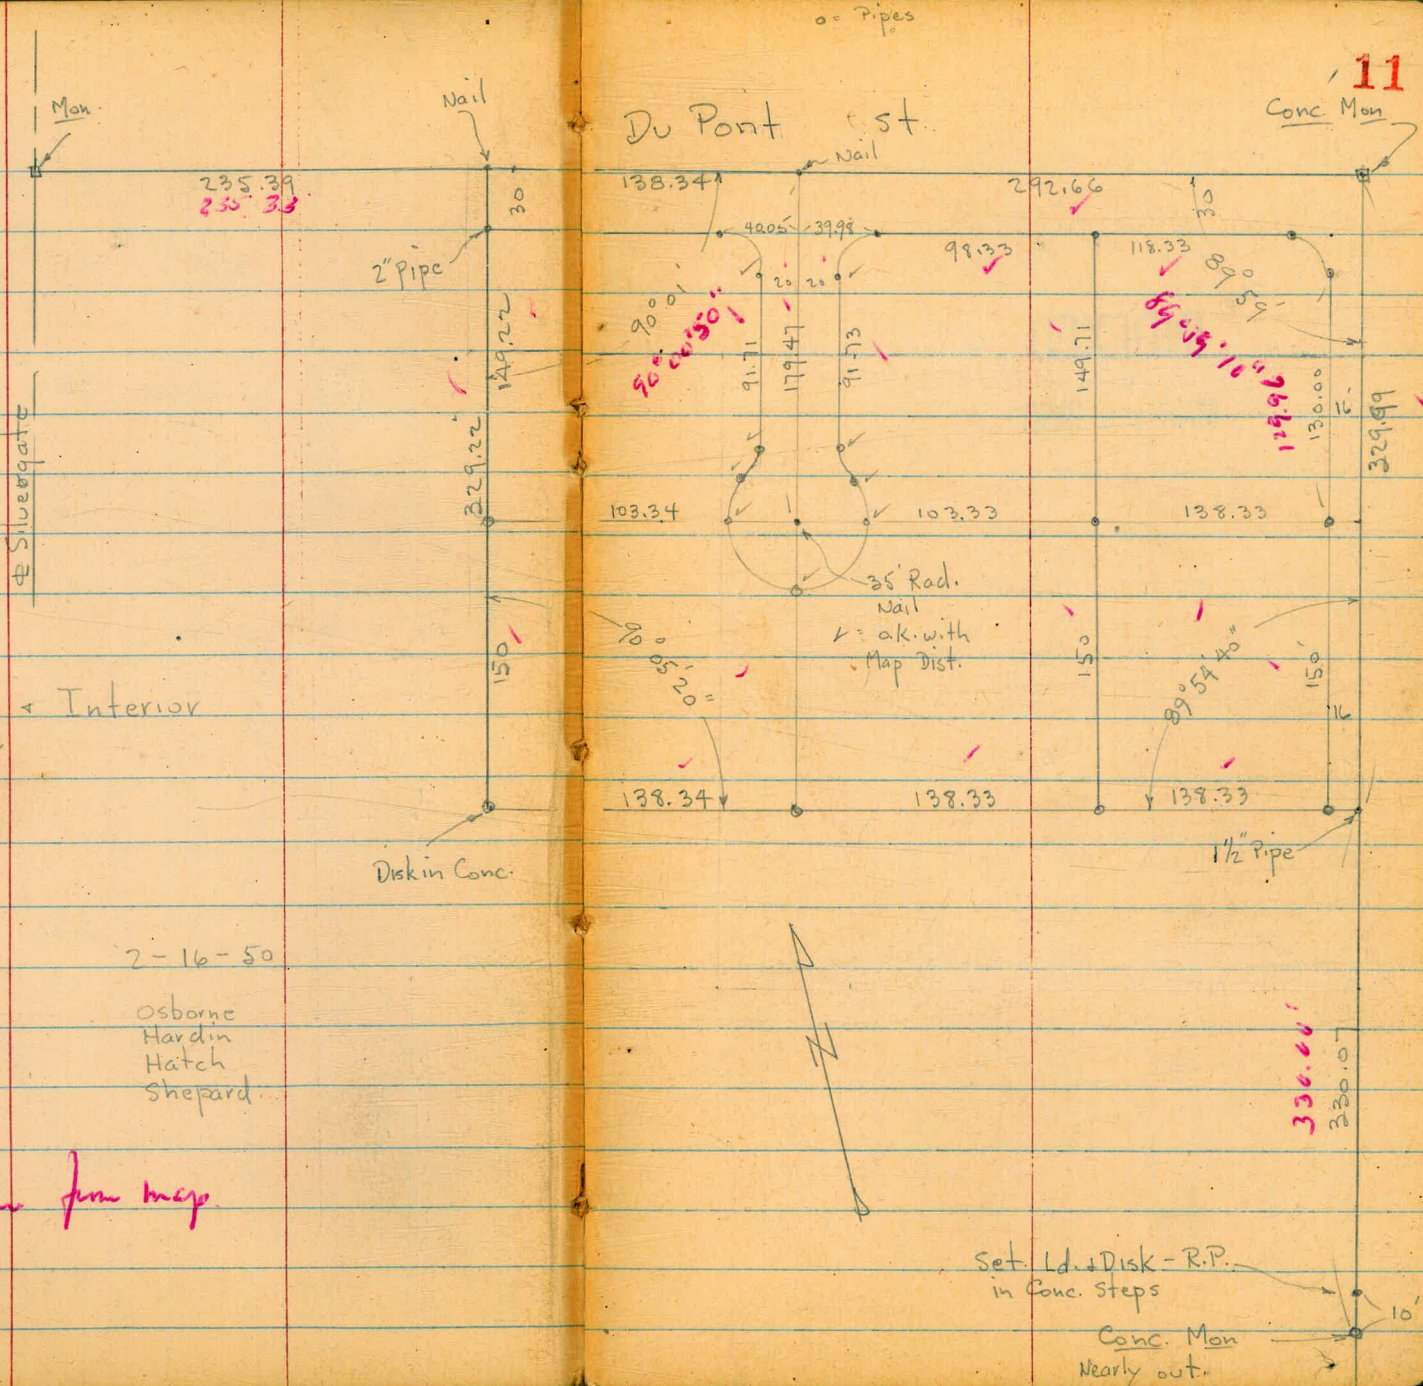 o = Pipes
11
Mon.
Nail
Du Pont St.
Conc. Mon
Nail
235.39
235.33
30
138.34
292.66
30
40.05
39.98
98.33
118.33
2" Pipe
20
20
90° 01'
90° 00' 50"
89° 59'
89° 59' 10"
129.97
149.22
91.71
179.47
91.73
149.71
130.00
16
329.99
℄ Silvergate
329.22
103.34
103.33
138.33
35' Rad.
Nail
✓ = o.k. with
Map Dist.
150
90° 05' 20"
150
89° 54' 40"
150'
16
Interior
138.34
138.33
138.33
1½" Pipe
Disk in Conc.
2-16-50
Osborne
Hardin
Hatch
Shepard
330.07
from map
Set Ld. & Disk - R.P.
in Conc. Steps
10'
Conc. Mon
Nearly out.